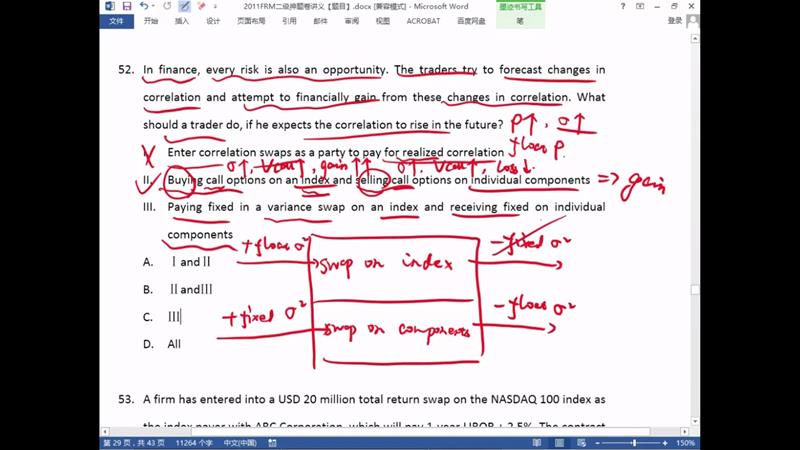 2011FRM二级押题卷讲义【题目】.docx [兼容模式] - Microsoft Word
墨迹书写工具
文件
开始
插入
设计
页面布局
引用
邮件
审阅
视图
ACROBAT
百度网盘
笔
登录
52. In finance, every risk is also an opportunity. The traders try to forecast changes in
correlation and attempt to financially gain from these changes in correlation. What
should a trader do, if he expects the correlation to rise in the future? ρ↑, σ↑
Enter correlation swaps as a party to pay for realized correlation float ρ.
σ↑, Vcall↑, gain↑↑ σ↑, Vcall↑, loss↓
II. Buying call options on an index and selling call options on individual components ⇒ gain
III. Paying fixed in a variance swap on an index and receiving fixed on individual
components
A. I and II
B. II and III
C. III
D. All
+float σ² swap on index -fixed σ²
+fixed σ² swap on components -float σ²
53. A firm has entered into a USD 20 million total return swap on the NASDAQ 100 index as
the index payer with ABC Corporation, which will pay 1-year LIBOR + 2.5%. The contract
第 29 页，共 43 页 11264 个字 中文(中国) 150%